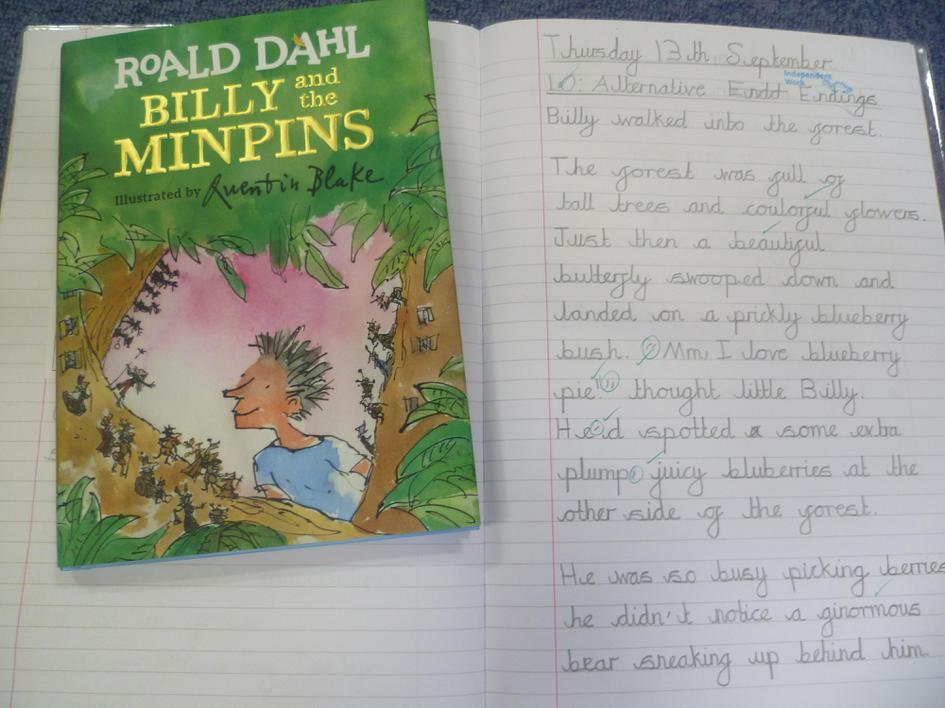 ROALD DAHL
BILLY and
the
MINPINS
Illustrated by Quentin Blake
Thursday 13th September
Independent
Work
LO: Alternative Endd Endings
Billy walked into the forest.
The forest was full of
tall trees and coulorful flowers.
Just then a beautiful
butterfly swooped down and
landed on a prickly blueberry
bush. "Mm, I love blueberry
pie!" thought little Billy.
He'd spotted a some extra
plump, juicy bluberries at the
other side of the forest.
He was so busy picking berries
he didn't notice a ginormous
bear sneaking up behind him.